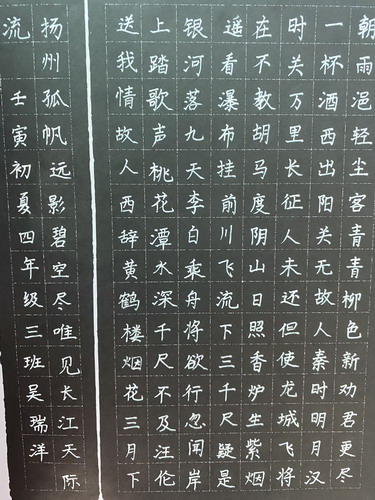 朝雨浥轻尘客青青柳色新劝君更尽
一杯酒西出阳关无故人秦时明月汉
时关万里长征人未还但使龙城飞将
在不教胡马度阴山日照香炉生紫烟
遥看瀑布挂前川飞流下三千尺疑是
银河落九天李白乘舟将欲行忽闻岸
上踏歌声桃花潭水深千尺不及汪伦
送我情故人西辞黄鹤楼烟花三月下
扬州孤帆远影碧空尽唯见长江天际
流 壬寅初夏四年级三班吴瑞洋